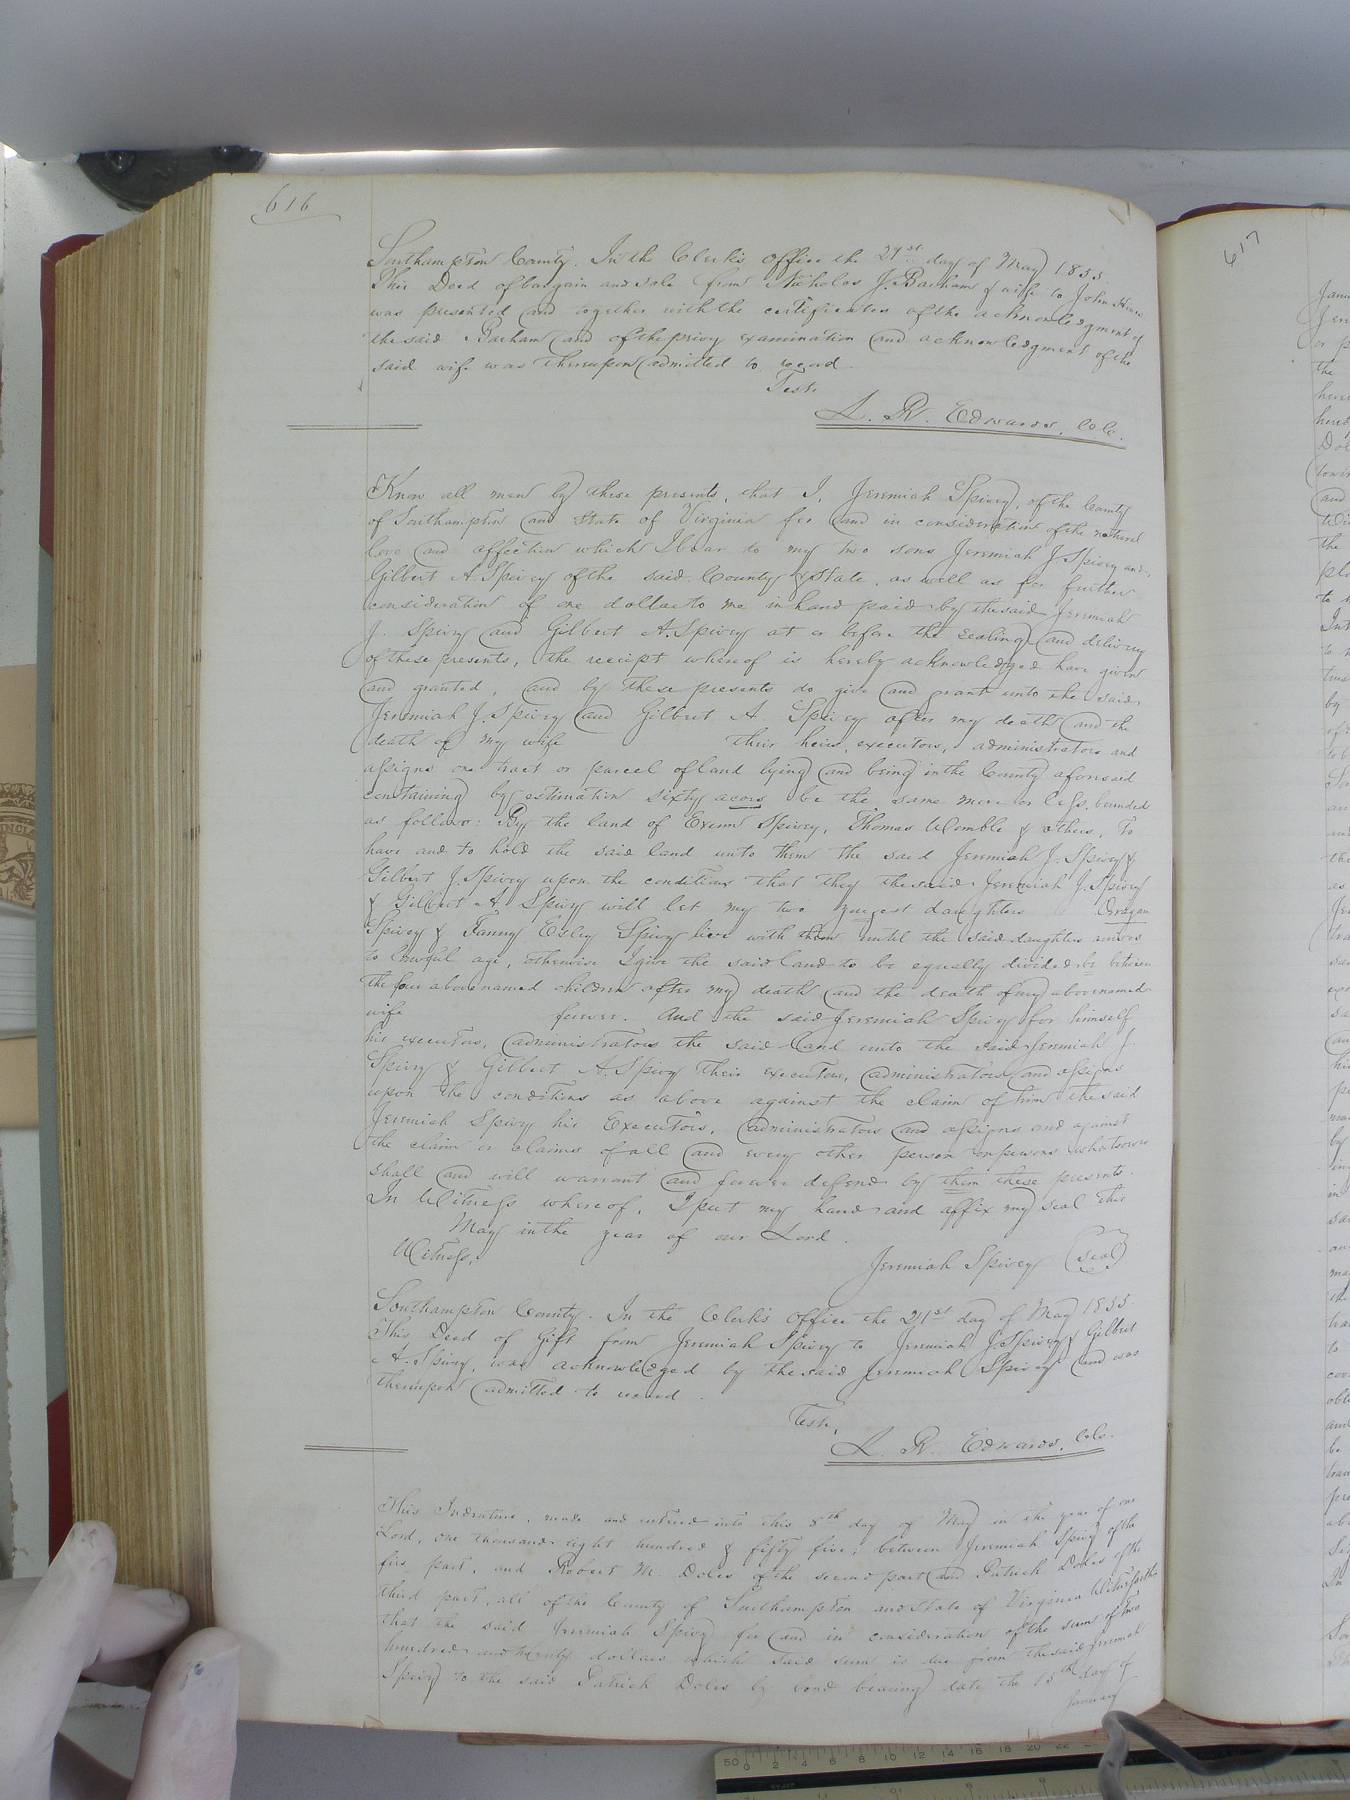 616
Southampton County. In the Clerk's Office the 21st day of May 1855.
This Deed of bargain and sale from Nicholas J. Barham & wife to John
was presented and together with the certificates of the acknowledgment of
the said Barham and of the privy examination and acknowledgment of the
said wife was thereupon admitted to record.
Teste.
L. R. Edwards, C.C.
Know all men by these presents, that I, Jeremiah Spivey, of the County
of Southampton and State of Virginia for and in consideration of the natural
love and affection which I bear to my two sons Jeremiah J. Spivey and
Gilbert A. Spivey of the said County & State, as well as for further
consideration of one dollar to me in hand paid by the said Jeremiah
J. Spivey and Gilbert A. Spivey at or before the sealing and delivery
of these presents, the receipt whereof is hereby acknowledged have given
and granted, and by these presents do give and grant unto the said
Jeremiah J. Spivey and Gilbert A. Spivey after my death and the
death of my wife their heirs, executors, administrators and
assigns one tract or parcel of land lying and being in the County aforesaid
containing by estimation sixty acors be the same more or less, bounded
as follows: By the land of Exum Spivey, Thomas Womble & others, To
have and to hold the said land unto them the said Jeremiah J. Spivey &
Gilbert J. Spivey upon the conditions that they the said Jeremiah J. Spivey
& Gilbert A. Spivey will let my two youngest daughters
Spivey & Fanny Esley Spivey live with them until the said daughters arrives
to lawful age, otherwise I give the said land to be equally divided be between
the four above named children after my death and the death of my above named
wife forever. And the said Jeremiah Spivey for himself
his executors, administrators the said land unto the said Jeremiah J.
Spivey & Gilbert A. Spivey their executors, administrators and assigns
upon the conditions as above against the claim of him the said
Jeremiah Spivey his Executors, administrators and assigns and against
the claim or claims of all and every other person or persons whatsoever
shall and will warrant and forever defend by them these presents.
In Witness whereof, I put my hand and affix my seal this
May in the year of our Lord.
Witness, Jeremiah Spivey (Seal)
Southampton County. In the Clerk's Office the 21st day of May 1855.
This Deed of Gift from Jeremiah Spivey to Jeremiah J. Spivey & Gilbert
A. Spivey, was acknowledged by the said Jeremiah Spivey and was
thereupon admitted to record.
Teste,
L. R. Edwards, C.C.
This Indenture, made and entered into this 8th day of May in the year of our
Lord, one thousand eight hundred & fifty five; between Jeremiah Spivey of the
firs part, and Robert M. Doles of the second part and Patrick Doles of the
third part, all of the County of Southampton and State of Virginia Witnesseth
that the said Jeremiah Spivey for and in consideration of the sum of two
hundred and twenty dollars which said sum is due from the said Jeremiah
Spivey to the said Patrick Doles by bond bearing date the 15th day of
January
617